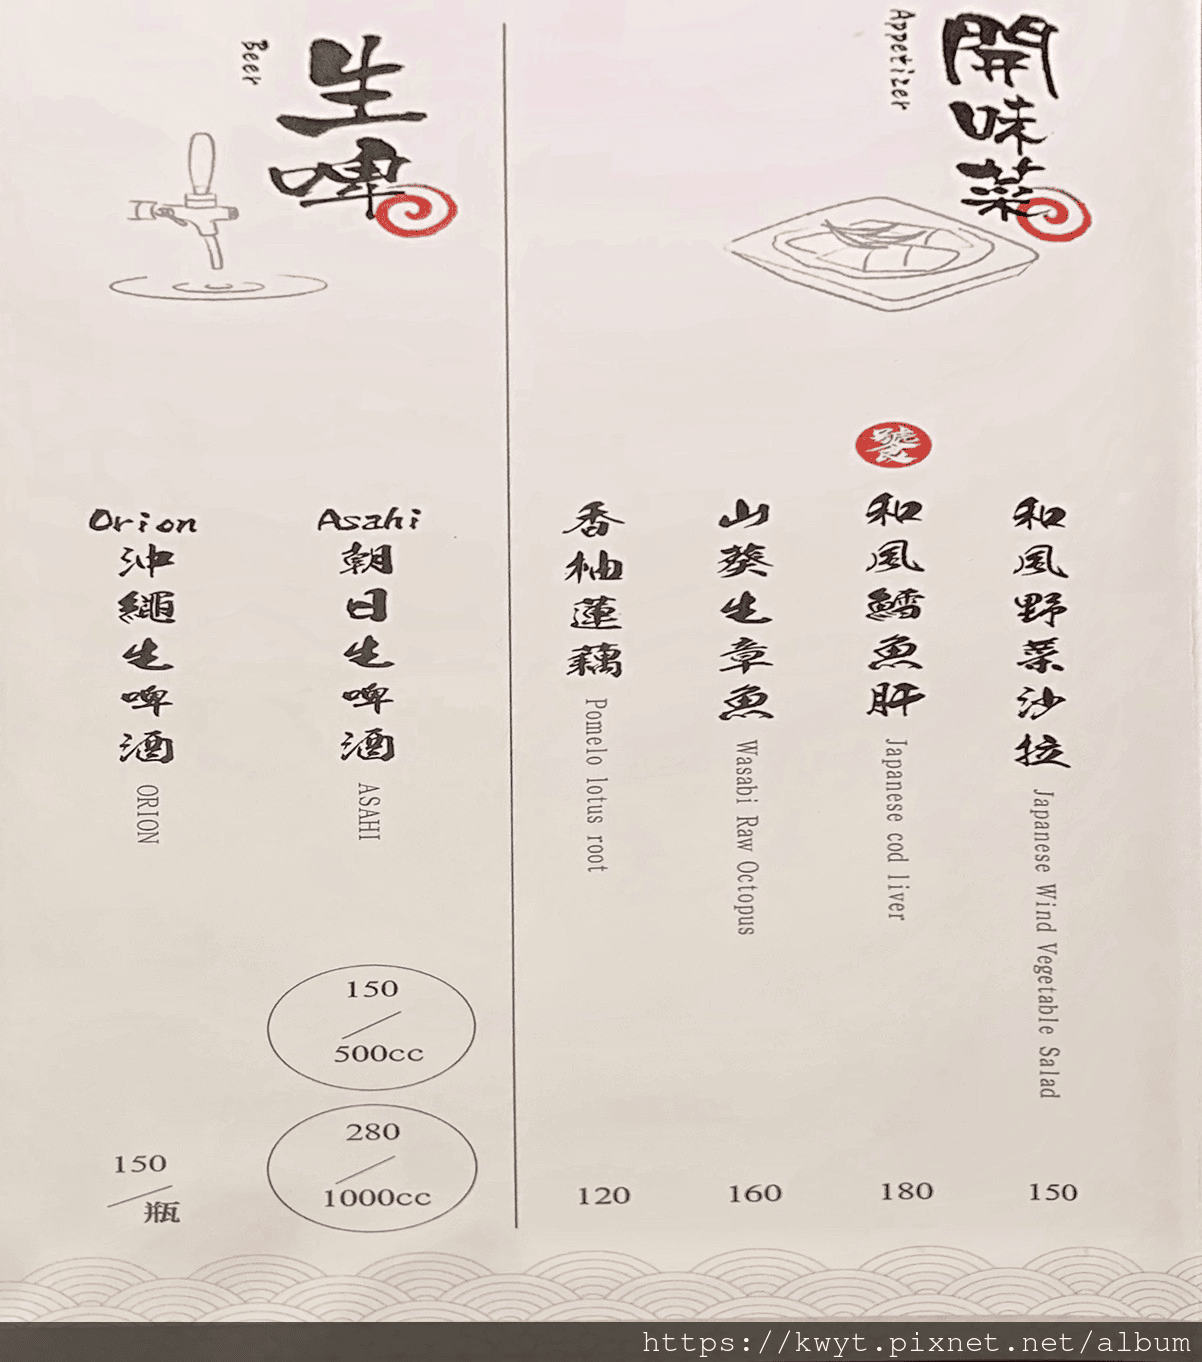 開味菜
Appetizer
和風野菜沙拉 Japanese Wind Vegetable Salad
150
饕
和風鱈魚肝 Japanese cod liver
180
山葵生章魚 Wasabi Raw Octopus
160
香柚蓮藕 Pomelo lotus root
120
生啤
Beer
Asahi朝日生啤酒 ASAHI
150
500cc
280
1000cc
Orion沖繩生啤酒 ORION
150
瓶
https://kwyt.pixnet.net/album